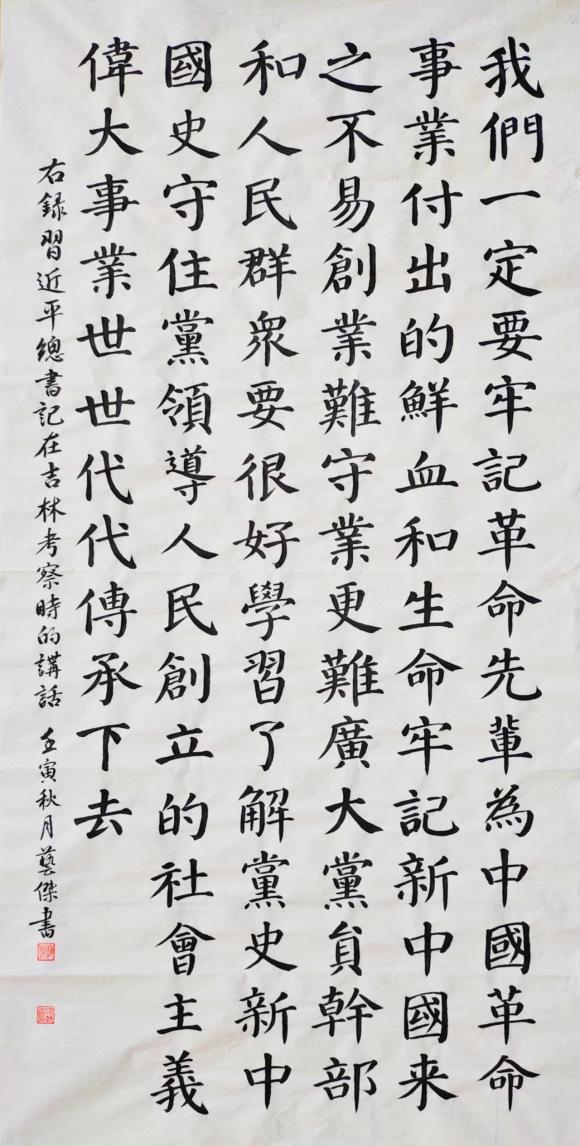 我們一定要牢記革命先輩為中國革命
事業付出的鮮血和生命牢記新中國来
之不易創業難守業更難廣大黨員幹部
和人民群眾要很好學習了解黨史新中
國史守住黨領導人民創立的社會主義
偉大事業世世代代傳承下去
右錄習近平總書記在吉林考察時的講話 壬寅秋月藝傑書